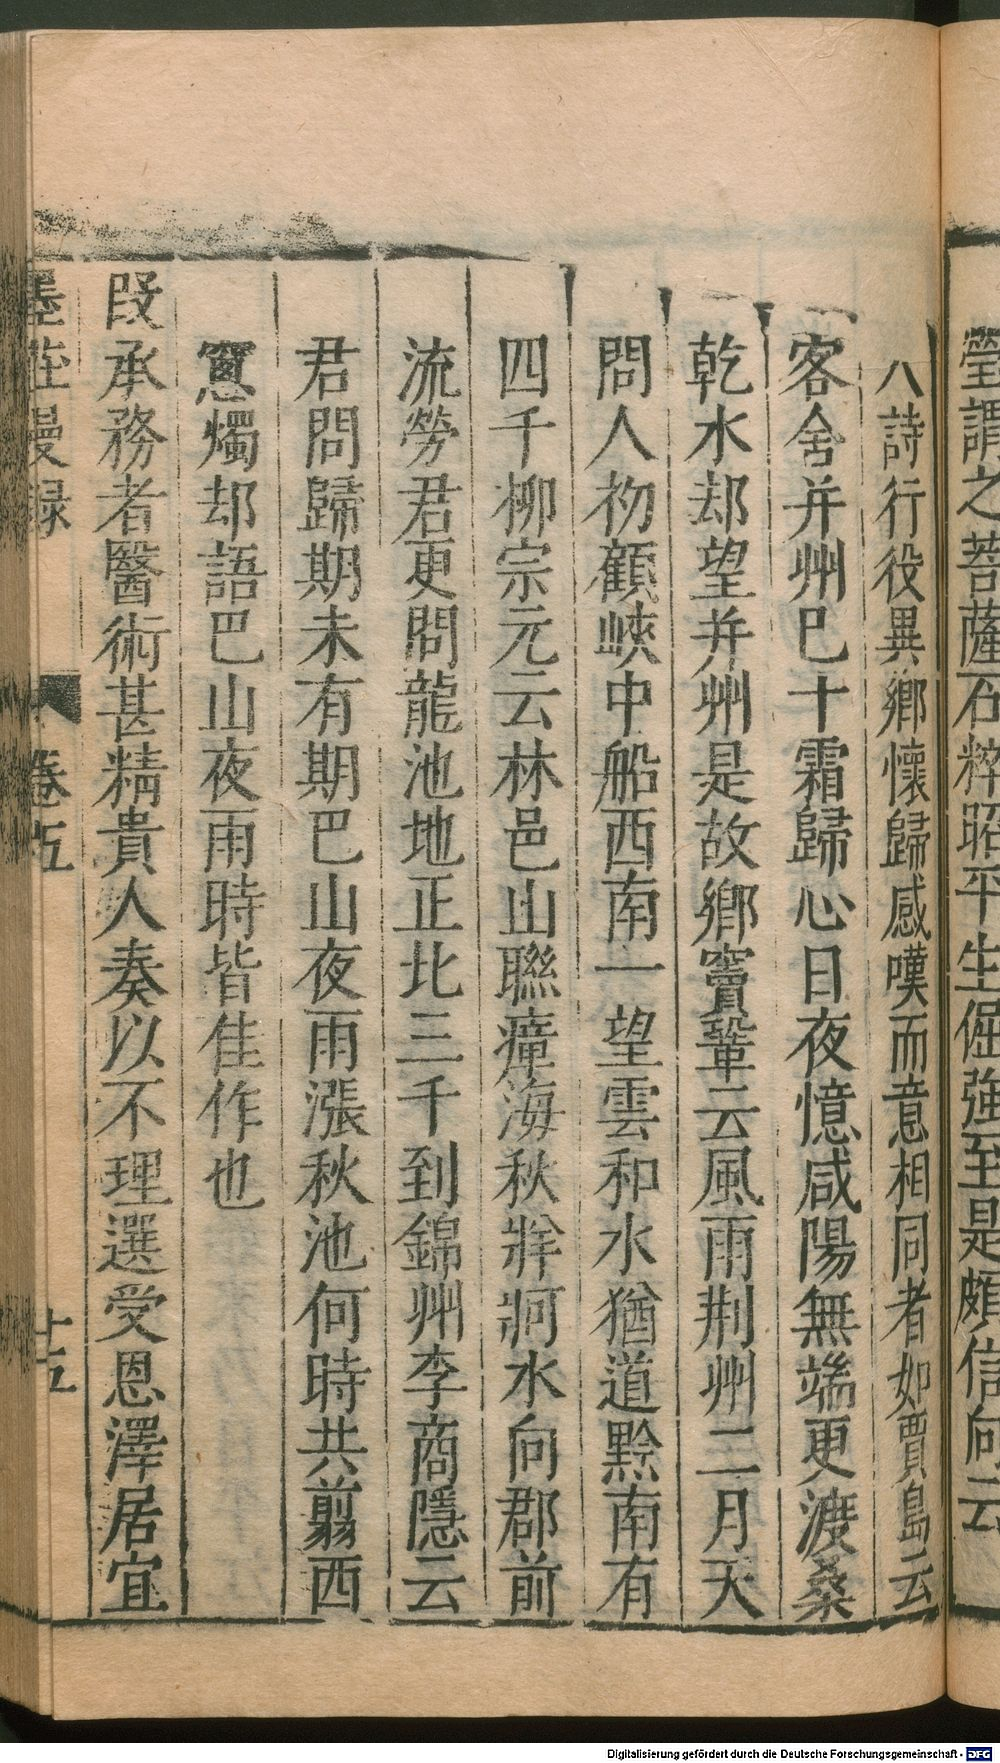 瑩謂之菩薩石粹昭平生倔強至是頗信向云
八詩行役異鄉懷歸感嘆而意相同者如賈島云
客舍并州巳十霜歸心日夜憶咸陽無端更渡桑
乾水却望并州是故鄉竇鞏云風雨荆州二月天
問人初顧峽中船西南一望雲和水猶道黔南有
四千柳宗元云林邑山聯瘴海秋牂牁水向郡前
流勞君更問龍池地正北三千到錦州李商隱云
君問歸期未有期巴山夜雨漲秋池何時共翦西
窻燭却語巴山夜雨時皆佳作也
段承務者醫術甚精貴人奏以不理選受恩澤居宜
墨莊漫録 卷五 十五
Digitalisierung gefördert durch die Deutsche Forschungsgemeinschaft - DFG